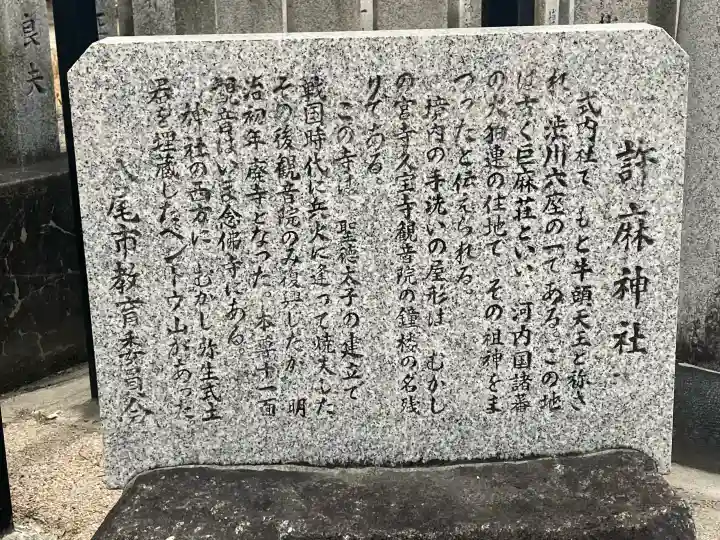 許麻神社
式内社で、もと牛頭天王と称さ
れ、渋川六座の一である。この地
は古く巨麻荘といい、河内国諸蕃
の大狛連の住地で、その祖神をま
つったと伝えられる。
境内の手洗いの屋形は、むかし
の宮寺久宝寺観音院の鐘楼の名残
りである。
この寺は、聖徳太子の建立で
戦国時代に兵火に逢って焼失した
その後観音院のみ復興したが、明
治初年廃寺となった。本尊十一面
観音はいま念佛寺にある。
神社の西方に、むかし弥生式土
器を埋蔵したベントウ山があった。
八尾市教育委員会
良夫